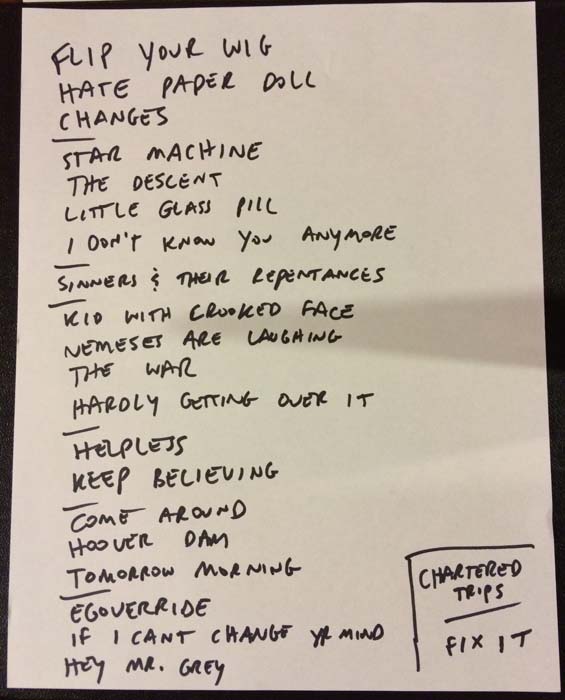 FLIP YOUR WIG
HATE PAPER DOLL
CHANGES
STAR MACHINE
THE DESCENT
LITTLE GLASS PILL
I DON'T KNOW YOU ANYMORE
SINNERS & THEIR REPENTANCES
KID WITH CROOKED FACE
NEMESES ARE LAUGHING
THE WAR
HARDLY GETTING OVER IT
HELPLESS
KEEP BELIEVING
COME AROUND
HOOVER DAM
TOMORROW MORNING
EGOVERRIDE
IF I CANT CHANGE YR MIND
HEY MR. GREY
CHARTERED
TRIPS
FIX IT